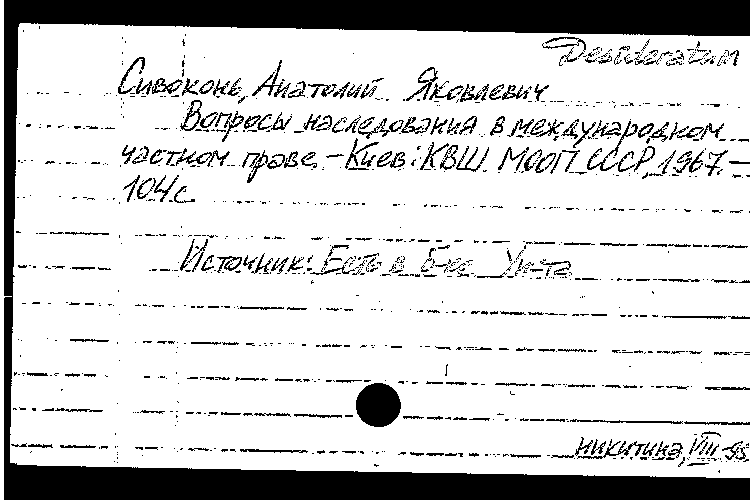 Desideratum
Сивоконь, Анатолий Яковлевич
Вопросы наследования в международном
частном праве. – Киев: КВШ МООП СССР, 1967. –
104 с.
Источник: Есть в б-ке Ун-та
никитина, VIII-95